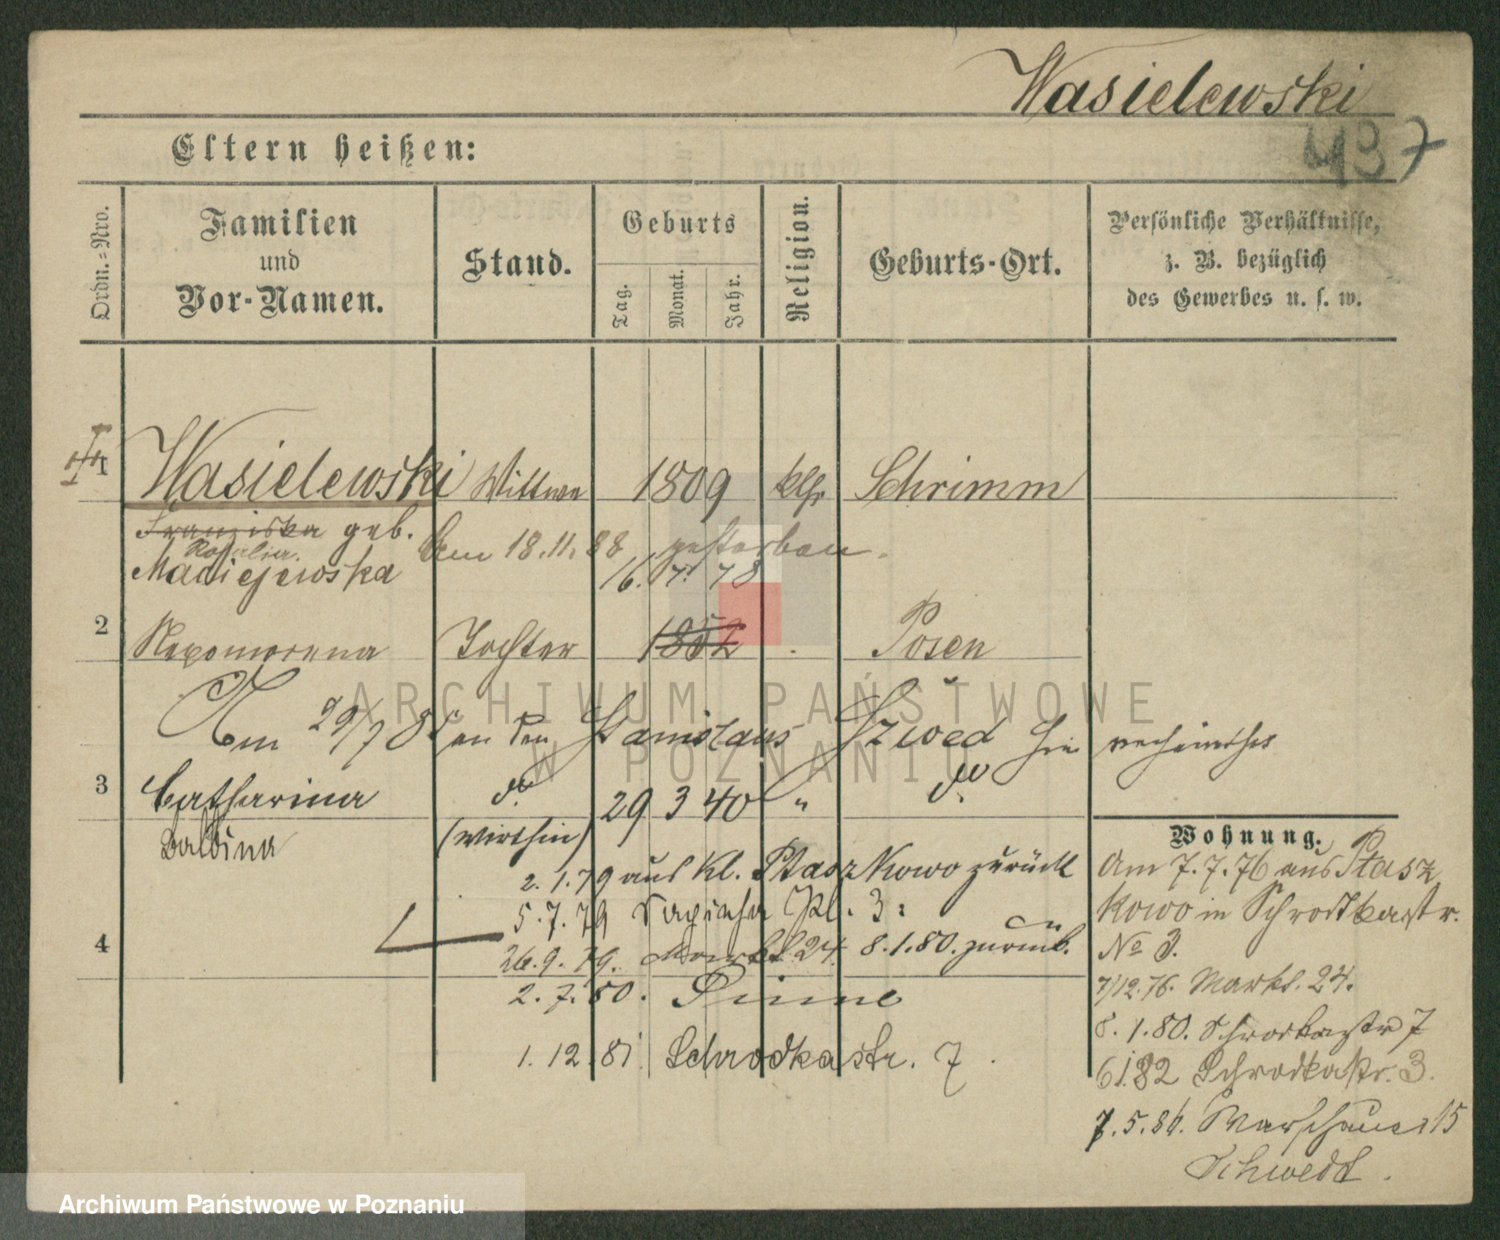 Wasielewski
437
Eltern heißen:
Ordn.-Nro.
Familien
und
Vor-Namen.
Stand.
Geburts
Tag.
Monat.
Jahr.
Religion.
Geburts-Ort.
Persönliche Verhältnisse,
z. B. bezüglich
des Gewerbes u. s. w.
1 Wasielewski Wittwe 1809 kth Schrimm
Franziska geb.
Rosalia.
Am 18.11.88 gestorben.
Maciejewska
16. 5. 78
2 Nepomocena Tochter 1852 Posen
Am 29/7 8 an den Stanislaus Szwed hie verheirathet
3 Catharina d. 29 3 40 " d.
Balbina
(Wirthin)
2. 1. 79 aus Kl. Ptaszkowo zurück
5. 7. 79 Sapieha Pl. 3.
4
26. 9. 79. Markt 24. 8. 1. 80. zurück.
2. 7. 80. Pinne
1. 12. 81 Schrodkastr. 7.
Wohnung.
Am 7. 7. 76 aus Ptasz
kowo in Schrodkastr.
No 3.
7/12. 76. Markt. 24.
8. 1. 80. Schrodkastr 7
6 1. 82 Schrodkastr. 3.
7. 5. 86. Warschauer 15
Schwedt.
ARCHIWUM PAŃSTWOWE
W POZNANIU
Archiwum Państwowe w Poznaniu